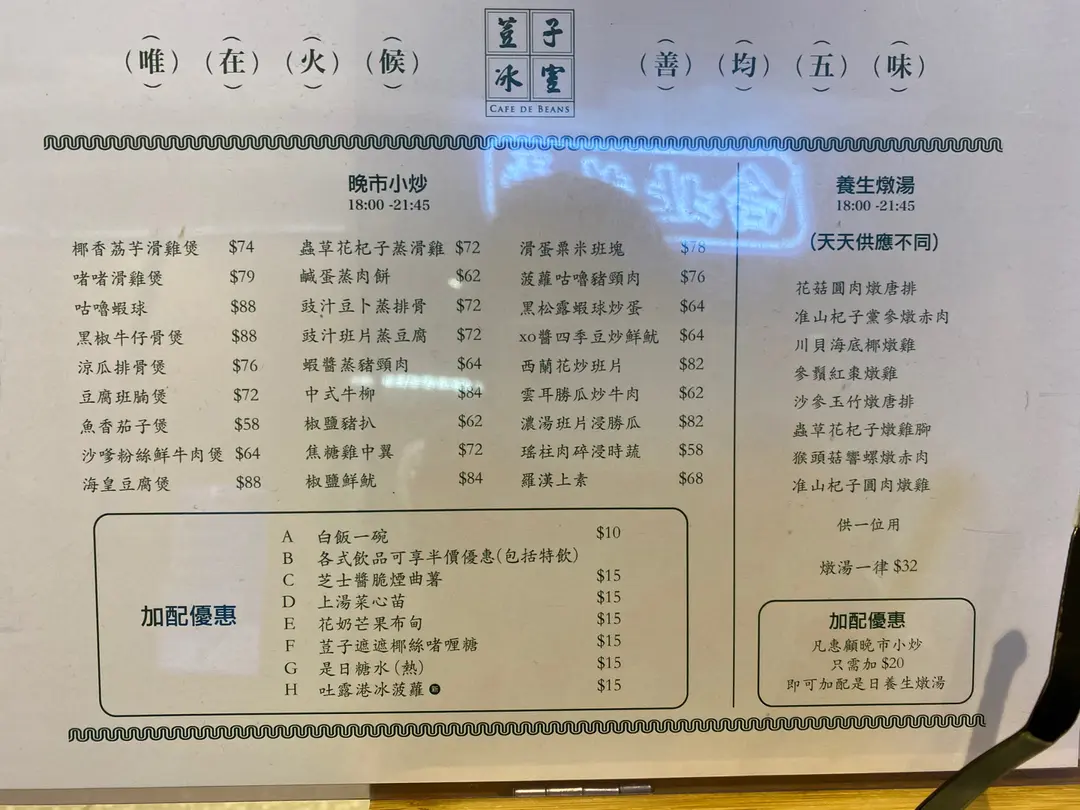 (唯) (在) (火) (候)
荳子
冰室
CAFE DE BEANS
(善) (均) (五) (味)
晚市小炒
18:00 -21:45
椰香荔芋滑雞煲 $74
啫啫滑雞煲 $79
咕嚕蝦球 $88
黑椒牛仔骨煲 $88
涼瓜排骨煲 $76
豆腐班腩煲 $72
魚香茄子煲 $58
沙嗲粉絲鮮牛肉煲 $64
海皇豆腐煲 $88
蟲草花杞子蒸滑雞 $72
鹹蛋蒸肉餅 $62
豉汁豆卜蒸排骨 $72
豉汁班片蒸豆腐 $72
蝦醬蒸豬頸肉 $64
中式牛柳 $84
椒鹽豬扒 $62
焦糖雞中翼 $72
椒鹽鮮魷 $84
滑蛋粟米班塊 $78
菠蘿咕嚕豬頸肉 $76
黑松露蝦球炒蛋 $64
xo醬四季豆炒鮮魷 $64
西蘭花炒班片 $82
雲耳勝瓜炒牛肉 $62
濃湯班片浸勝瓜 $82
瑤柱肉碎浸時蔬 $58
羅漢上素 $68
加配優惠
A 白飯一碗 $10
B 各式飲品可享半價優惠(包括特飲)
C 芝士醬脆煙曲薯 $15
D 上湯菜心苗 $15
E 花奶芒果布甸 $15
F 荳子遮遮椰絲啫喱糖 $15
G 是日糖水(熱) $15
H 吐露港冰菠蘿 $15
養生燉湯
18:00 -21:45
(天天供應不同)
花菇圓肉燉唐排
准山杞子黨參燉赤肉
川貝海底椰燉雞
參鬚紅棗燉雞
沙參玉竹燉唐排
蟲草花杞子燉雞腳
猴頭菇響螺燉赤肉
准山杞子圓肉燉雞
供一位用
燉湯一律 $32
加配優惠
凡惠顧晚市小炒
只需加 $20
即可加配是日養生燉湯